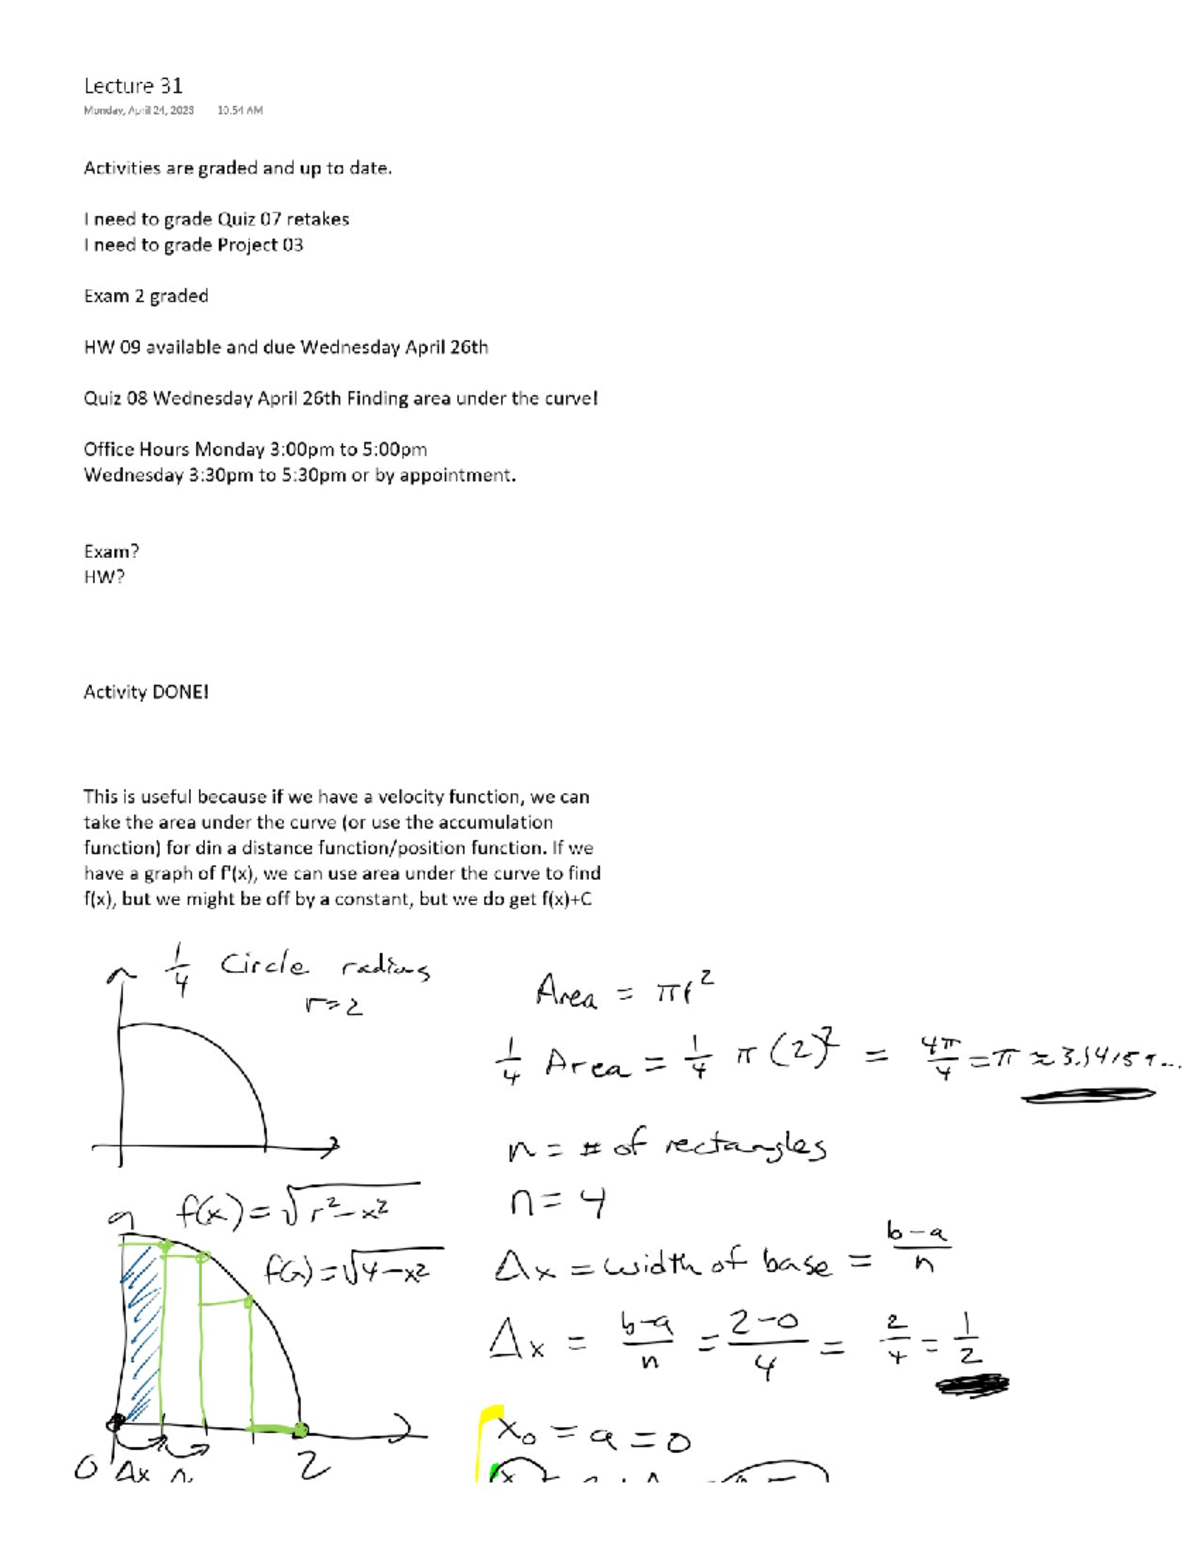 Lecture 31
Monday, April 24, 2023 10:54 AM
Activities are graded and up to date.
I need to grade Quiz 07 retakes
I need to grade Project 03
Exam 2 graded
HW 09 available and due Wednesday April 26th
Quiz 08 Wednesday April 26th Finding area under the curve!
Office Hours Monday 3:00pm to 5:00pm
Wednesday 3:30pm to 5:30pm or by appointment.
Exam?
HW?
Activity DONE!
This is useful because if we have a velocity function, we can
take the area under the curve (or use the accumulation
function) for din a distance function/position function. If we
have a graph of f'(x), we can use area under the curve to find
f(x), but we might be off by a constant, but we do get f(x)+C
1/4 Circle radius
r=2
Area = πr²
1/4 Area = 1/4 π (2)² = 4π/4 = π ≈ 3.1415...
n = # of rectangles
n = 4
f(x) = √(r²-x²)
f(x) = √(4-x²)
Δx = width of base = (b-a)/n
Δx = (b-a)/n = (2-0)/4 = 2/4 = 1/2
x₀ = a = 0
0 Δx 2